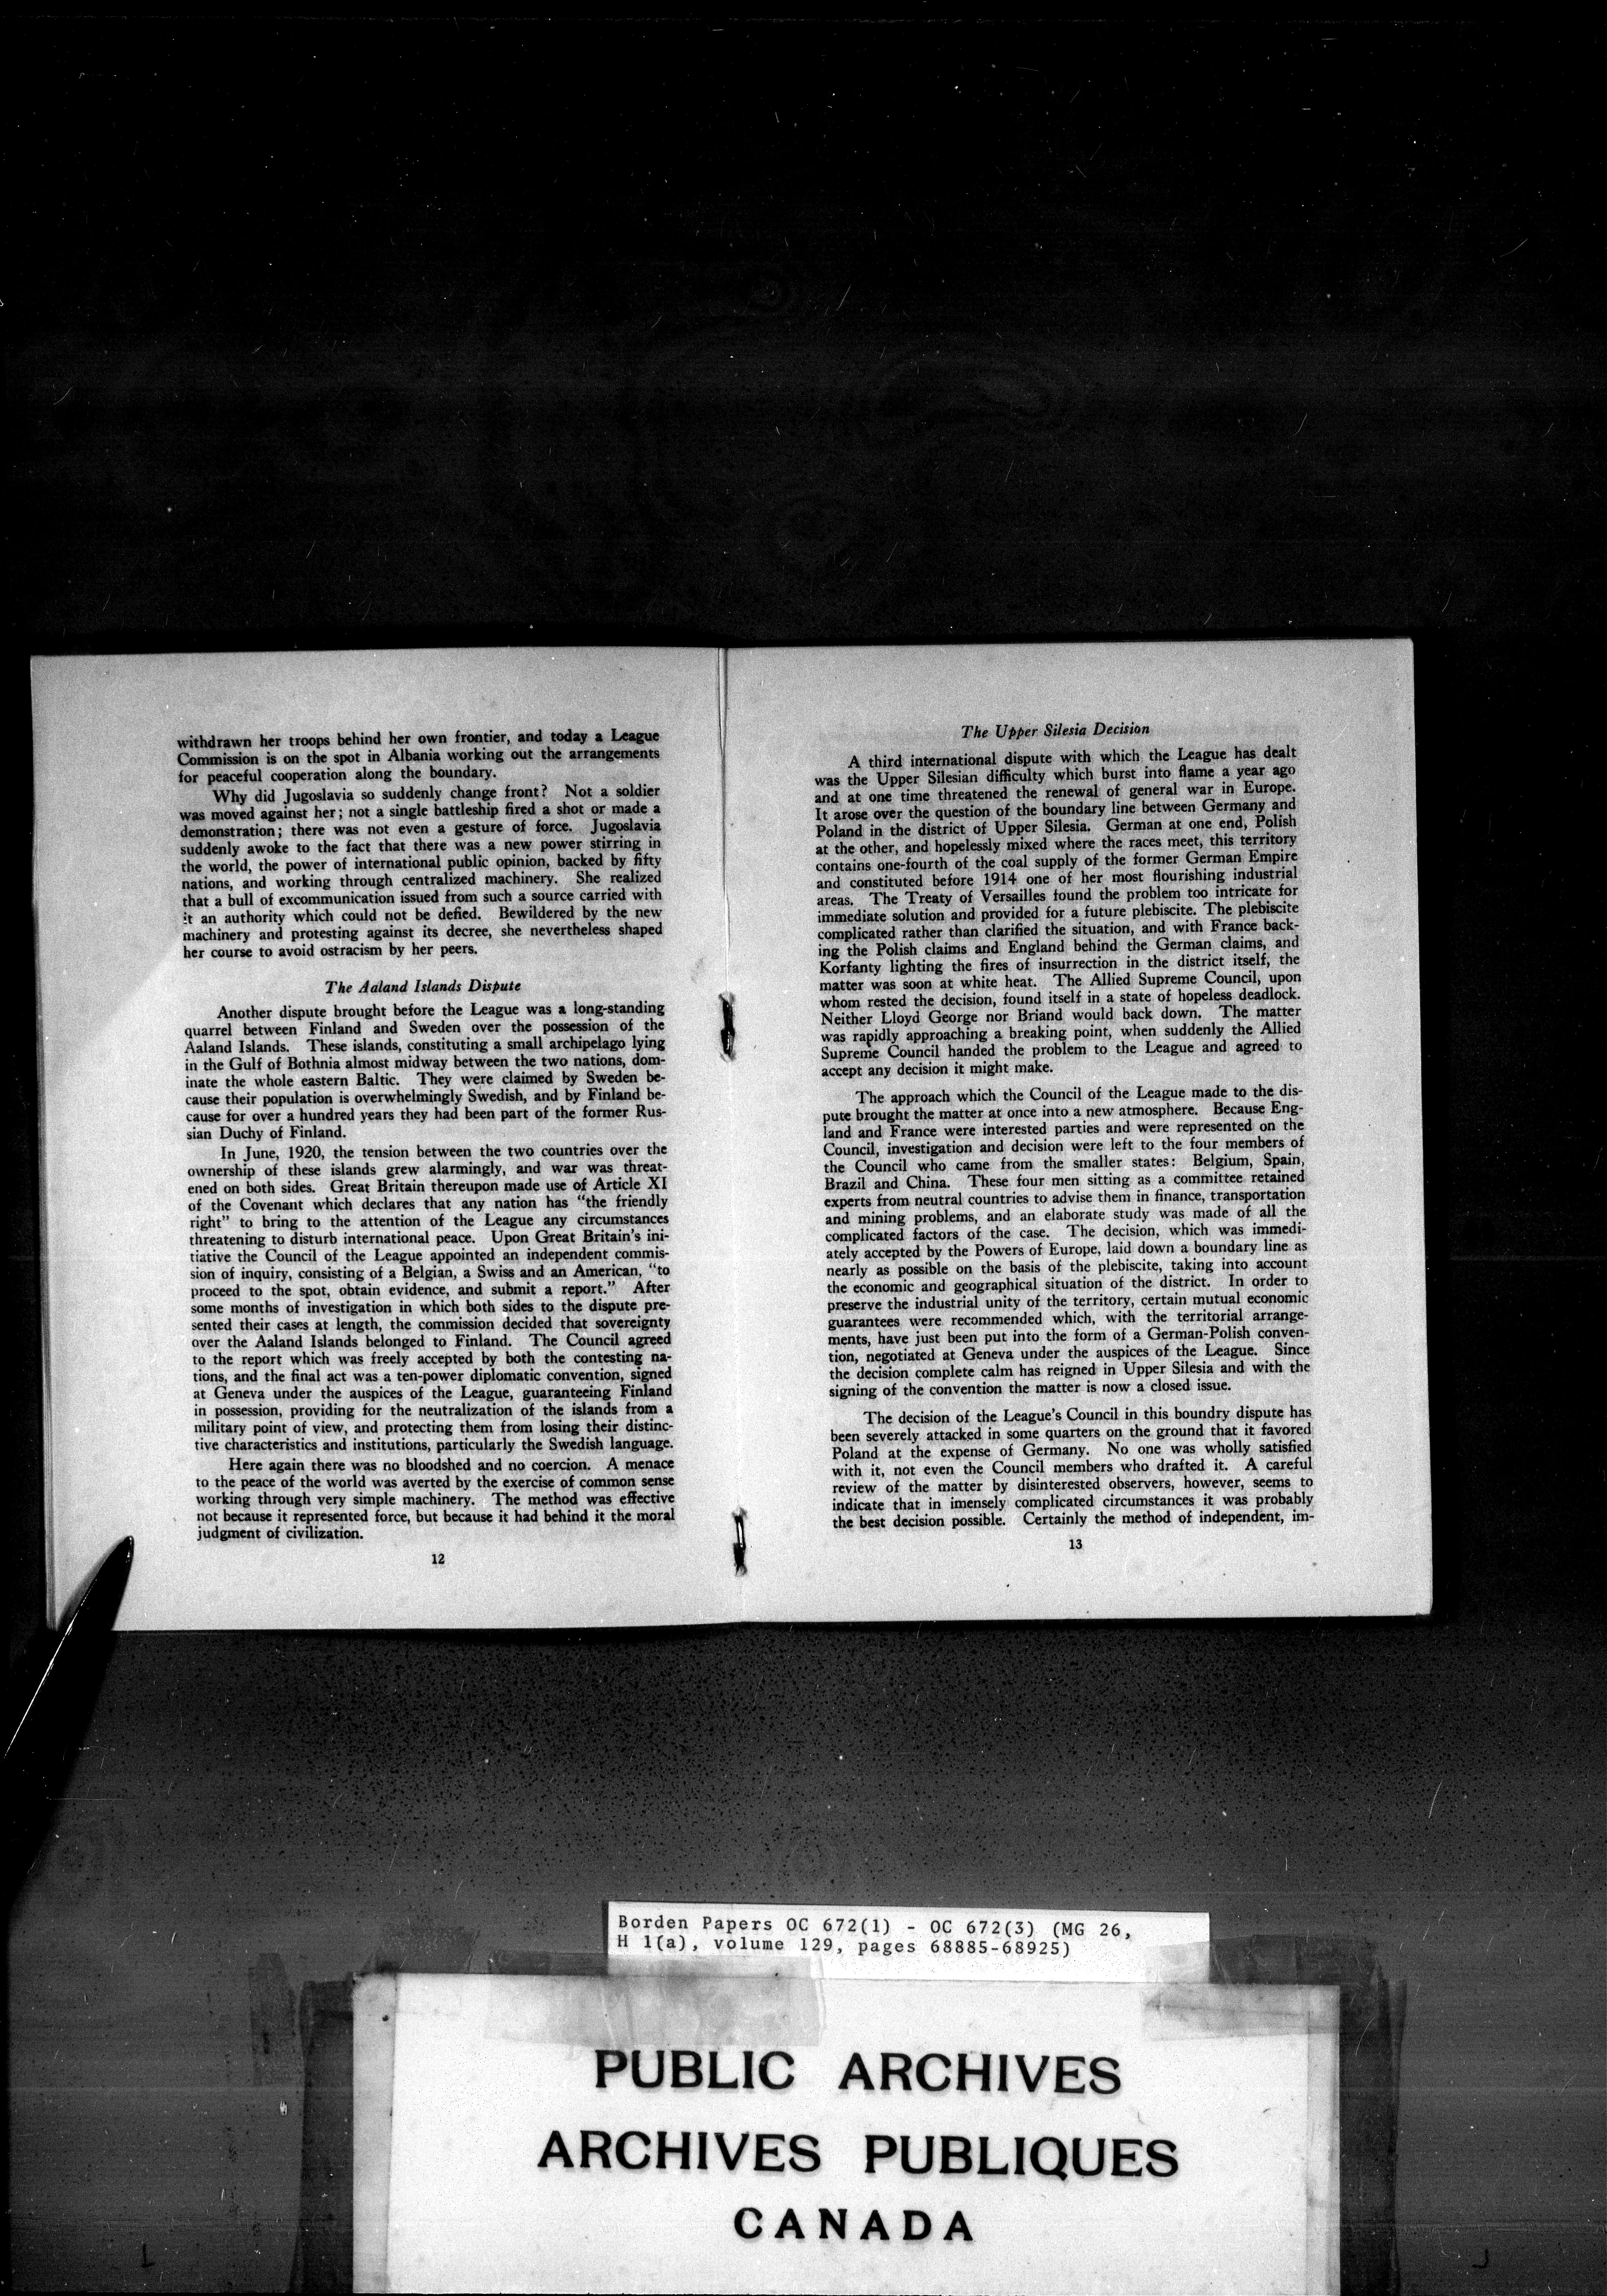 withdrawn her troops behind her own frontier, and today a League
Commission is on the spot in Albania working out the arrangements
for peaceful cooperation along the boundary.
Why did Jugoslavia so suddenly change front? Not a soldier
was moved against her; not a single battleship fired a shot or made a
demonstration; there was not even a gesture of force. Jugoslavia
suddenly awoke to the fact that there was a new power stirring in
the world, the power of international public opinion, backed by fifty
nations, and working through centralized machinery. She realized
that a bull of excommunication issued from such a source carried with
it an authority which could not be defied. Bewildered by the new
machinery and protesting against its decree, she nevertheless shaped
her course to avoid ostracism by her peers.
The Aaland Islands Dispute
Another dispute brought before the League was a long-standing
quarrel between Finland and Sweden over the possession of the
Aaland Islands. These islands, constituting a small archipelago lying
in the Gulf of Bothnia almost midway between the two nations, dom-
inate the whole eastern Baltic. They were claimed by Sweden be-
cause their population is overwhelmingly Swedish, and by Finland be-
cause for over a hundred years they had been part of the former Rus-
sian Duchy of Finland.
In June, 1920, the tension between the two countries over the
ownership of these islands grew alarmingly, and war was threat-
ened on both sides. Great Britain thereupon made use of Article XI
of the Covenant which declares that any nation has "the friendly
right" to bring to the attention of the League any circumstances
threatening to disturb international peace. Upon Great Britain's ini-
tiative the Council of the League appointed an independent commis-
sion of inquiry, consisting of a Belgian, a Swiss and an American, "to
proceed to the spot, obtain evidence, and submit a report." After
some months of investigation in which both sides to the dispute pre-
sented their cases at length, the commission decided that sovereignty
over the Aaland Islands belonged to Finland. The Council agreed
to the report which was freely accepted by both the contesting na-
tions, and the final act was a ten-power diplomatic convention, signed
at Geneva under the auspices of the League, guaranteeing Finland
in possession, providing for the neutralization of the islands from a
military point of view, and protecting them from losing their distinc-
tive characteristics and institutions, particularly the Swedish language.
Here again there was no bloodshed and no coercion. A menace
to the peace of the world was averted by the exercise of common sense
working through very simple machinery. The method was effective
not because it represented force, but because it had behind it the moral
judgment of civilization.
12
The Upper Silesia Decision
A third international dispute with which the League has dealt
was the Upper Silesian difficulty which burst into flame a year ago
and at one time threatened the renewal of general war in Europe.
It arose over the question of the boundary line between Germany and
Poland in the district of Upper Silesia. German at one end, Polish
at the other, and hopelessly mixed where the races meet, this territory
contains one-fourth of the coal supply of the former German Empire
and constituted before 1914 one of her most flourishing industrial
areas. The Treaty of Versailles found the problem too intricate for
immediate solution and provided for a future plebiscite. The plebiscite
complicated rather than clarified the situation, and with France back-
ing the Polish claims and England behind the German claims, and
Korfanty lighting the fires of insurrection in the district itself, the
matter was soon at white heat. The Allied Supreme Council, upon
whom rested the decision, found itself in a state of hopeless deadlock.
Neither Lloyd George nor Briand would back down. The matter
was rapidly approaching a breaking point, when suddenly the Allied
Supreme Council handed the problem to the League and agreed to
accept any decision it might make.
The approach which the Council of the League made to the dis-
pute brought the matter at once into a new atmosphere. Because Eng-
land and France were interested parties and were represented on the
Council, investigation and decision were left to the four members of
the Council who came from the smaller states: Belgium, Spain,
Brazil and China. These four men sitting as a committee retained
experts from neutral countries to advise them in finance, transportation
and mining problems, and an elaborate study was made of all the
complicated factors of the case. The decision, which was immedi-
ately accepted by the Powers of Europe, laid down a boundary line as
nearly as possible on the basis of the plebiscite, taking into account
the economic and geographical situation of the district. In order to
preserve the industrial unity of the territory, certain mutual economic
guarantees were recommended which, with the territorial arrange-
ments, have just been put into the form of a German-Polish conven-
tion, negotiated at Geneva under the auspices of the League. Since
the decision complete calm has reigned in Upper Silesia and with the
signing of the convention the matter is now a closed issue.
The decision of the League's Council in this boundry dispute has
been severely attacked in some quarters on the ground that it favored
Poland at the expense of Germany. No one was wholly satisfied
with it, not even the Council members who drafted it. A careful
review of the matter by disinterested observers, however, seems to
indicate that in imensely complicated circumstances it was probably
the best decision possible. Certainly the method of independent, im-
13
Borden Papers OC 672(1) - OC 672(3) (MG 26,
H 1(a), volume 129, pages 68885-68925)
PUBLIC ARCHIVES
ARCHIVES PUBLIQUES
CANADA